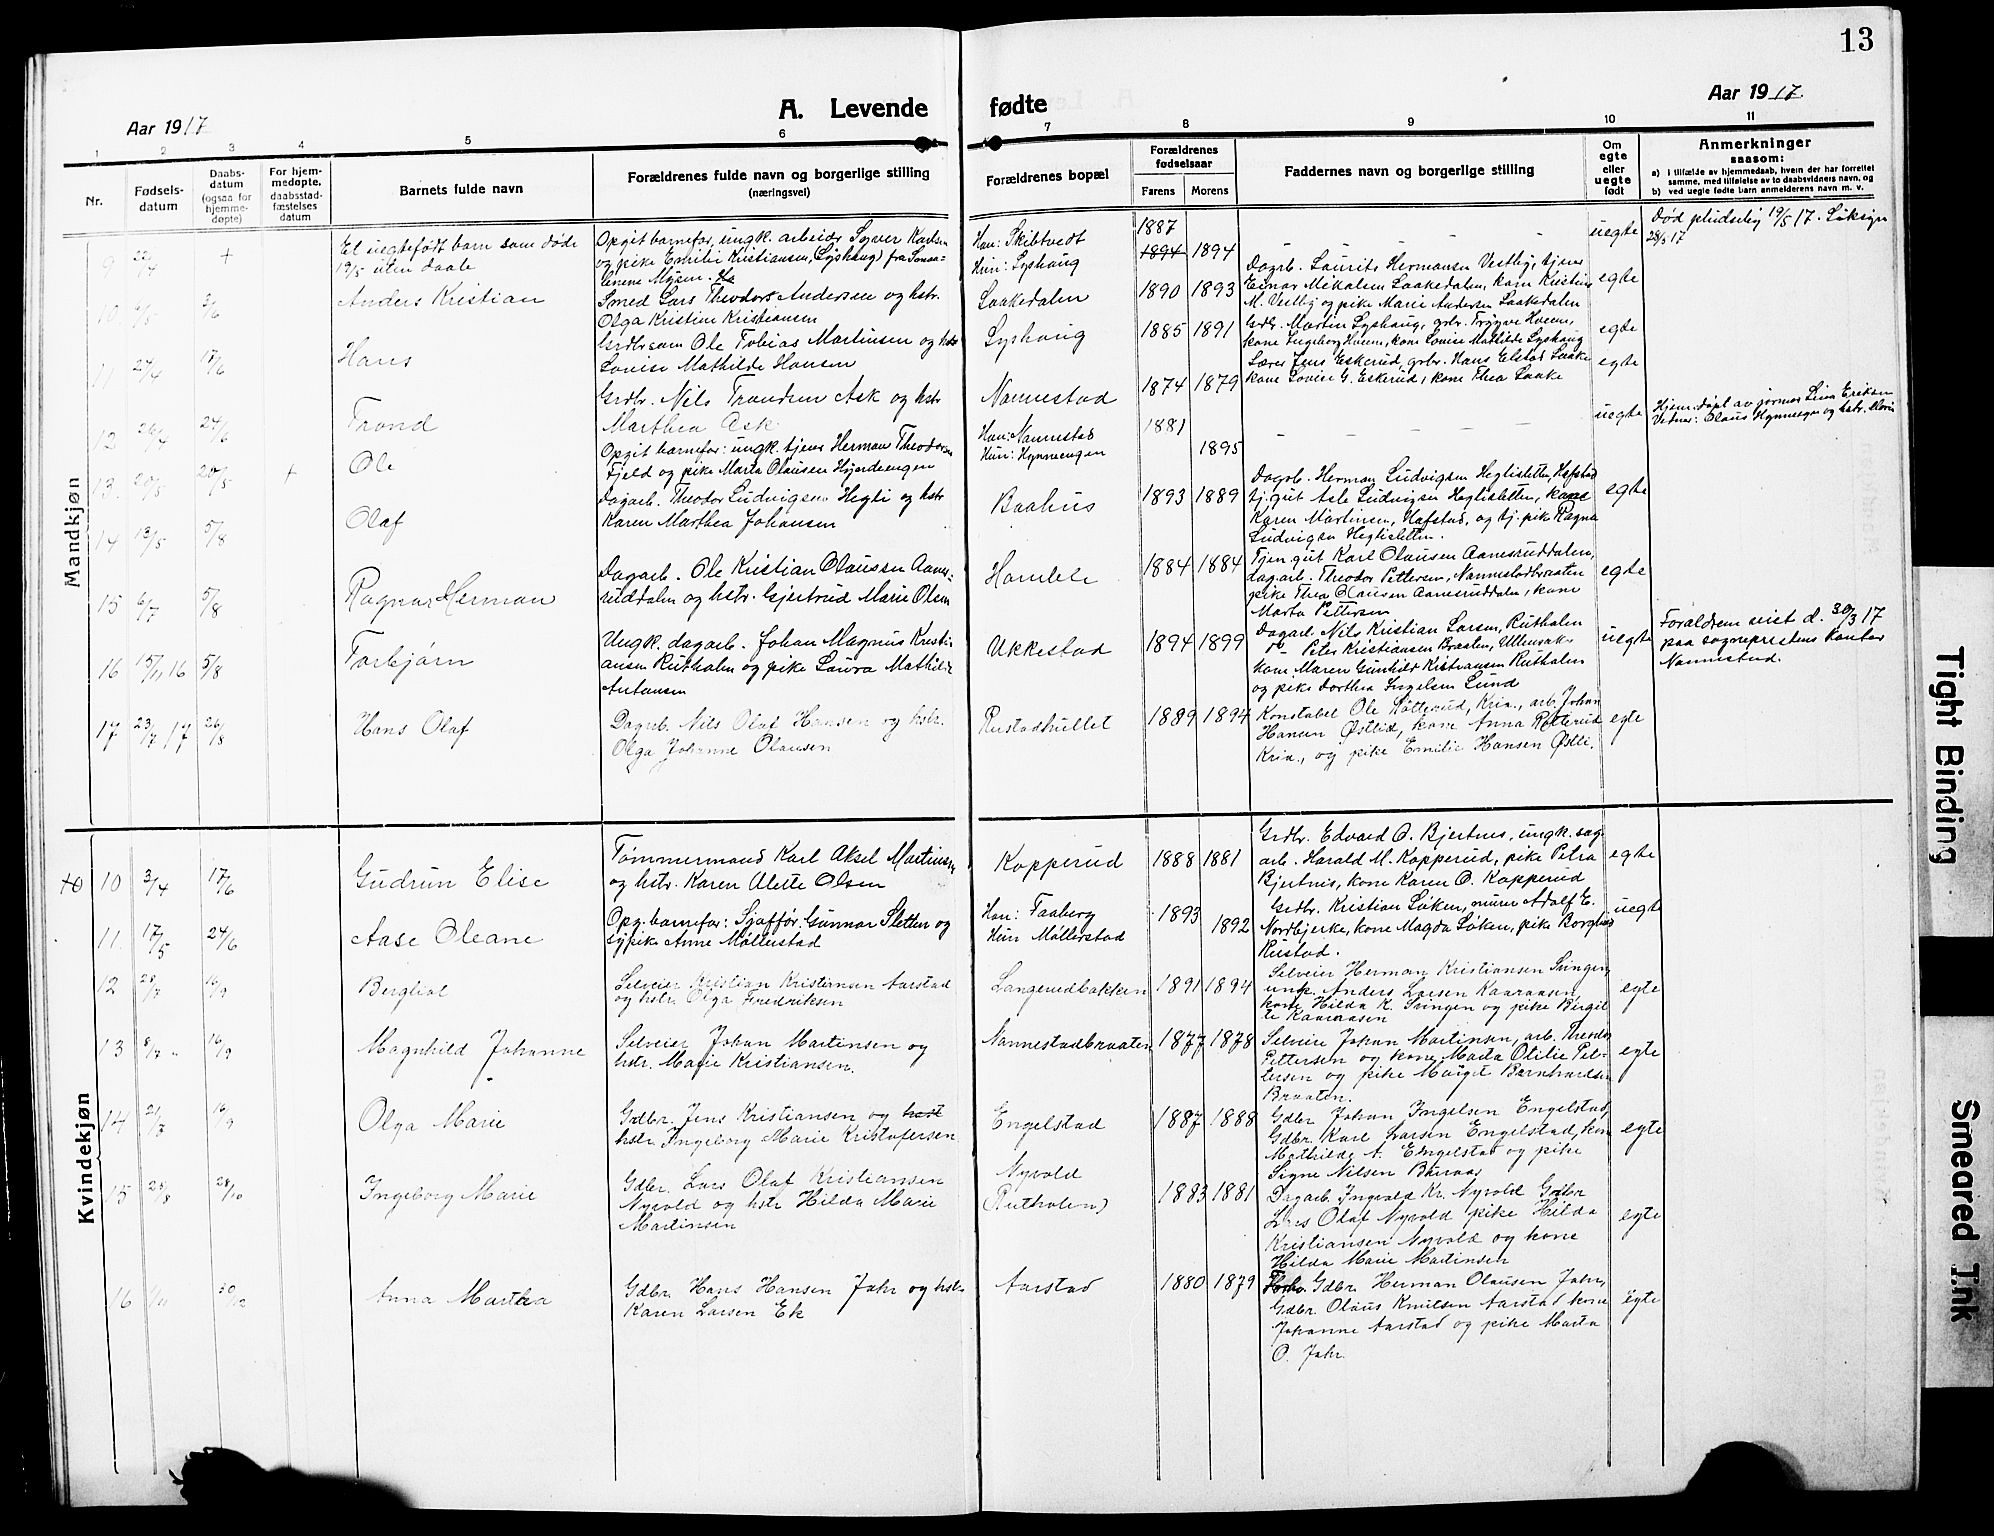 13
Aar 1917
A. Levende fødte
Aar 1917.
1 2 3 4 5 6 7 8 9 10 11
Nr.
Fødsels-
datum
Daabs-
datum
(ogsaa for
hjemme-
døpte)
For hjem-
medøpte,
daabsstad-
fæstelses
datum
Barnets fulde navn
Forældrenes fulde navn og borgerlige stilling
(næringsvei)
Forældrenes bopæl
Forældrenes
fødselsaar
Farens Morens
Faddernes navn og borgerlige stilling
Om
egte
eller
uegte
født
Anmerkninger
saasom:
a) i tilfælde av hjemmedaab, hvem der har forrettet
samme, med tilføielse av to daabsvidners navn, og
b) ved uegte født barn anmelderens navn m. v.
Mandkjøn
9 22/4 +
Et uegtefødt barn som døde
19/5 uten daab
Opgit barnefar, ungk. arbeider Syver Karlsen
og pike Emilie Kristiansen, (Lyshaug) fra
Han: Skibtvedt
Hun: Lyshaug
1887
1894 1894
uegte
Død pludselig 19/5 17.
28/5 17
10 3/6
Anders Kristian
Smed Lars Theodor Andersen og hstr.
Olga Kristine Kristiansen
Laakedalen
1890 1893
Dagarb. Laurits Hermansen Vestby, tjener
Einar Mikalsen Laakedalen, kone Kristine
M. Vestby og pike Marie Andersen Laakedalen
egte
11 24/4 17/6
Hans
Ole Tobias Martinsen og hstr
Louise Mathilde Hansen
Lyshaug
1885 1891
Grdbr. Martin Lyshaug, grbr. Trygve Hveem,
kone Ingeborg Hveem, kone Louise Mathilde Lyshaug
egte
12 24/6
Trond
Grdbr. Nils Trondsen Ask og hstr
Marthea Ask
Nannestad
1874 1879
Lærer Jens Eskerud, grbr. Hans Elstad Laake
kone Lovise G. Eskerud, kone Thea Laake
egte
13. 20/5 20/5 +
Ole
Opgit barnefar: ungk. tjener Herman Theodorsen
Fjeld og pike Marta Olausen Hynneengen
Han: Nannestad
Hun: Hynneengen
1881
1895
uegte
Hjem. døpt av jormor Lina Eriksen
Vidner: Olaus Hynneengen og hstr. Maria
14 13/5 5/8
Olaf
Dagarb. Theodor Ludvigsen Hegli og hstr
Karen Marthea Johansen
Baahus
1893 1889
Dagarb. Herman Ludvigsen Heglisletten, Hafstad
tj. gut Asle Ludvigsen Heglisletten, kone
Karen Martinsen, Hafstad, og tj. pike Ragna
Ludvigsen Heglisletten.
egte
15 6/7 5/8
Ragnar Herman
Dagarb. Ole Kristian Olaussen Aanes-
ruddalen og hstr. Gjertrud Marie Olsen
1884 1884
Tjen. gut Karl Olausen Aanesruddalen,
dagarb. Theodor Pettersen, Nannestadbraaten
pike Thea Olausen Aanesruddalen, kone
Marta Pettersen
egte
16 15/11 16 5/8
Torbjørn
Ungk. dagarb. Johan Magnus Kristi-
ansen Ruthalen og pike Laura Mathilde
Antonsen
Ukkestad
1894 1899
Dagarb. Nils Kristian Larsen, Ruthalen
Do Peter Kristiansen Braaten, Ullensaker
kone Maren Gunhild Kristiansen Ruthalen
og pike Dorthea Ingelsen Lund
uegte
Forældrene viet d. 30/3 17
paa sogneprestens kontor
Nannestad.
17 23/7 17 26/8
Hans Olaf
Dagarb. Nils Olaf Hansen og hstr.
Olga Johanne Olausen
Rustadhullet
1889 1894
Konstabel Ole Røtterud, Kria., arb. Johan
Hansen Østlid, kone Anna Røtterud
Kria., og pike Emilie Hansen Østli.
egte
Kvindekjøn
10 3/4 17/6
Gudrun Elise
Tømmermand Karl Aksel Martinsen
og hstr. Karen Alette Olsen
Kopperud
1888 1881
Grdbr. Edvard O. Bjertnes, ungk. sag-
arb. Harald M. Kopperud, pike Petra
Bjertnes, kone Karen O. Kopperud
egte
11. 17/5 24/6
Aase Oleane
Opg. barnefar: Sjaffør Gunnar Sletten og
sypike Anne Møllerstad
Han: Faaberg
Hun Møllerstad
1893
1892
Grdbr. Kristian Løken, murer Adolf E.
Nordbjerke, kone Magda Løken, pike Borghild
Rustad.
uegte
12 28/7 16/9
Bergliot
Selveier Kristian Kristiansen Aarstad
og hstr. Olga Fredriksen
Langerudbakken
1891 1894
Selveier Herman Kristiansen Svingen,
ungk. Anders Larsen Kaaraasen,
kone Hilda K. Svingen og pike Birgit
te Kaaraasen
egte
13 8/7 16/9
Magnhild Johanne
Selveier Johan Martinsen og
hstr. Marie Kristiansen.
Nannestadbraaten
1877 1878
Selveier Johan Martinsen, arb. Theodor
Pettersen og kone Marta Otilie Pet-
tersen og pike Margit Bernhardsen
Braaten.
egte
14 21/7 16/9
Olga Marie
Gdbr. Jens Kristiansen og hast
hstr. Ingeborg Marie Kristofersen
Engelstad
1887 1888
Gdbr. Johan Ingelsen Engelstad,
Gdbr. Karl Larsen Engelstad, kone
Mathilde A. Engelstad og pike
Signe Nilsen
egte
15 28/8 28/10
Ingeborg Marie
Gdbr. Lars Olaf Kristiansen
Nyvold og hstr Hilda Marie
Martinsen
Nyvold
(Rutholen)
1883 1881
Dagarb. Ingvald Kr. Nyvold Gdbr
Lars Olaf Nyvold pike Hilda
Kristiansen Nyvold og kone
Hilda Marie Martinsen
egte
16 1/11 30/12
Anna Marthea
Gdbr. Hans Hansen Jahr og hstr
Karen Larsen Ek
Aarstad
1880 1879
Gdbr. Herman Olausen Jahr,
Gdbr. Olaus Knutsen Aarstad, kone
Johanne Aarstad og pike Marta
O. Jahr.
egte
Tight Binding
Smeared Ink